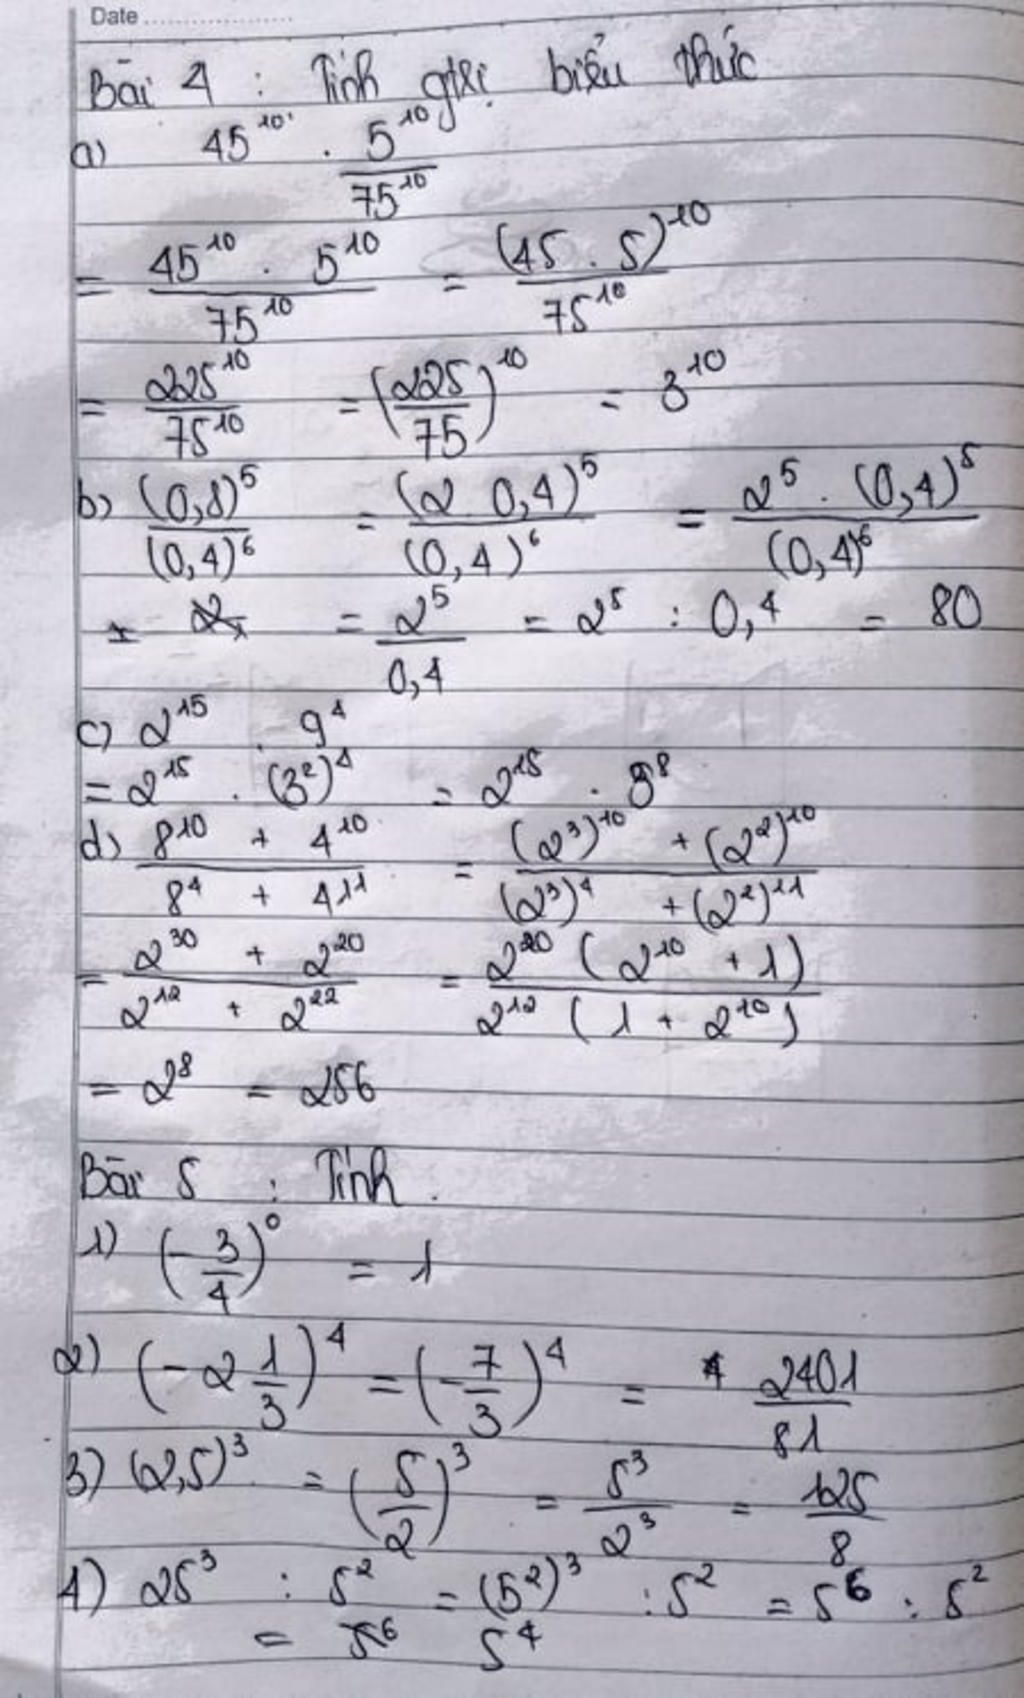 Date
Bài 4 : Tính gtrị biểu thức
a) 45^10 . 5^10/75^10
= (45^10 . 5^10)/75^10 = (45 . 5)^10/75^10
= 225^10/75^10 = (225/75)^10 = 3^10
b) (0,8)^5/(0,4)^6 = (2 . 0,4)^5/(0,4)^6 = 2^5 . (0,4)^5/(0,4)^6
= 2^5/0,4 = 2^5 : 0,4 = 80
c) 2^15 . 9^4
= 2^15 . (3^2)^4 = 2^15 . 3^8
d) (8^10 + 4^10)/(8^4 + 4^11) = ((2^3)^10 + (2^2)^10)/((2^3)^4 + (2^2)^11)
= (2^30 + 2^20)/(2^12 + 2^22) = 2^20 (2^10 + 1)/2^12 (1 + 2^10)
= 2^8 = 256
Bài 5 : Tính
1) (-3/4)^0 = 1
2) (-2 1/3)^4 = (-7/3)^4 = 2401/81
3) (2,5)^3 = (5/2)^3 = 5^3/2^3 = 125/8
4) 25^3 : 5^2 = (5^2)^3 : 5^2 = 5^6 : 5^2
= 5^4